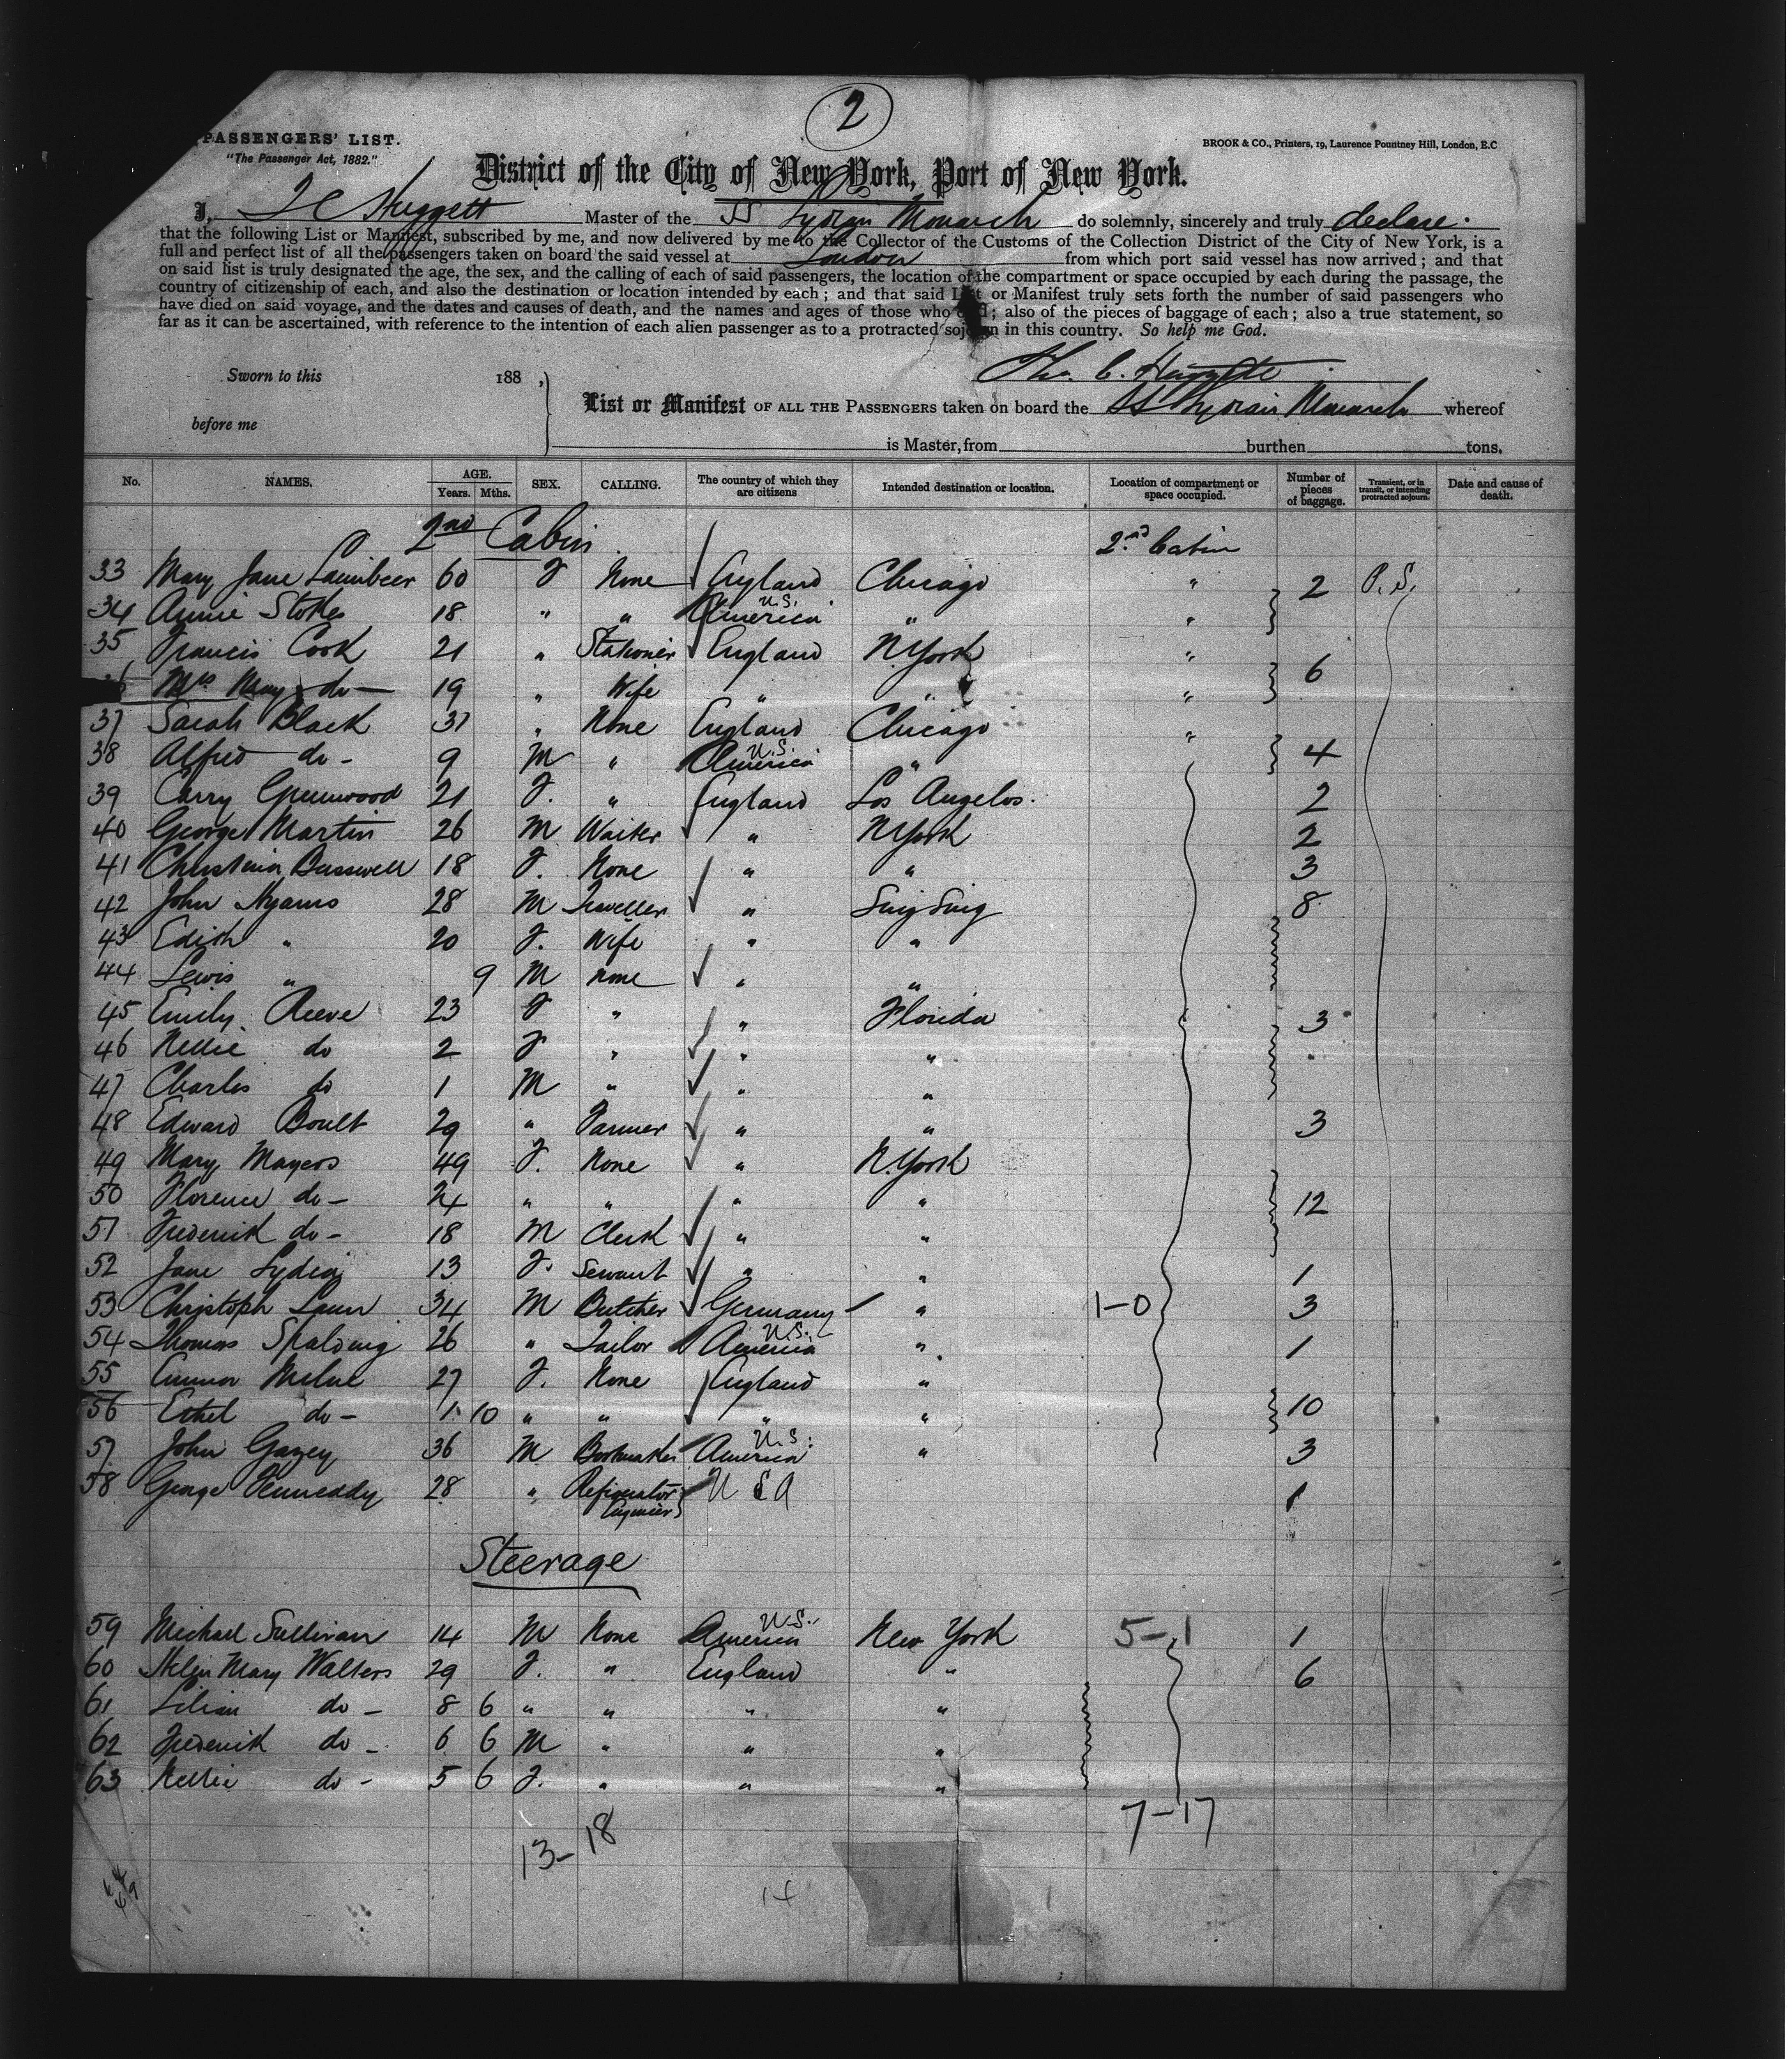 2
PASSENGERS' LIST.
"The Passenger Act, 1882."
BROOK & CO., Printers, 19, Laurence Pountney Hill, London, E.C
District of the City of New York, Port of New York.
I, T C Huggett Master of the SS Lydian Monarch do solemnly, sincerely and truly declare.
that the following List or Manifest, subscribed by me, and now delivered by me to the Collector of the Customs of the Collection District of the City of New York, is a
full and perfect list of all the passengers taken on board the said vessel at London from which port said vessel has now arrived; and that
on said list is truly designated the age, the sex, and the calling of each of said passengers, the location of the compartment or space occupied by each during the passage, the
country of citizenship of each, and also the destination or location intended by each; and that said List or Manifest truly sets forth the number of said passengers who
have died on said voyage, and the dates and causes of death, and the names and ages of those who died; also of the pieces of baggage of each; also a true statement, so
far as it can be ascertained, with reference to the intention of each alien passenger as to a protracted sojourn in this country. So help me God.
Tho. C. Huggett
Sworn to this 188 ,
List or Manifest OF ALL THE PASSENGERS taken on board the SS Lydian Monarch whereof
before me
is Master, from burthen tons.
No. NAMES. AGE. Years. Mths. SEX. CALLING. The country of which they are citizens Intended destination or location. Location of compartment or space occupied. Number of pieces of baggage. Transient, or in transit, or intending protracted sojourn. Date and cause of death.
2nd Cabin 2nd Cabin
33 Mary Jane 60 F None England Chicago " 2 P. S.
34 Annie Stokes 18 " " U.S. America " "
35 Francis Cook 21 " Stationer England N. York " 6
36 Mrs May do — 19 " Wife " " "
37 Sarah Black 37 " None England Chicago "
38 Alfred do - 9 M " U.S. America " 4
39 Carry Greenwood 21 F. " England Los Angelos. 2
40 George Martin 26 M Waiter " N York 2
41 Christina Busswell 18 F. None " " 3
42 John Hyams 28 M Traveller " Sing Sing 8
43 Edith " 20 F. Wife " "
44 Lewis " 9 M None " "
45 Emily Reeve 23 F " " Florida 3
46 Nellie do 2 F " " "
47 Charles do 1 M " " "
48 Edward Boult 29 " Farmer " " 3
49 Mary Mayers 49 F. None " N. York
50 Florence do - 24 " " " " 12
51 Frederick do - 18 M Clerk " "
52 Jane Lydia 13 F. Servant " " 1
53 Christoph Laun 34 M Butcher Germany " 1-0 3
54 Thomas Spalding 26 " Tailor U.S. America " 1
55 Emma Milne 27 F. None England "
56 Ethel do - 1 10 " " " " 10
57 John Gazey 36 M Bookmaker U.S. America " 3
58 George Kenneddy 28 " Refrigerator Engineer U S A 1
Steerage
59 Michael Sullivan 14 M None U.S. America New York 5-1 1
60 Helen Mary Walters 29 F. " England " 6
61 Lilian do - 8 6 " " " "
62 Frederick do - 6 6 M " " "
63 Nellie do - 5 6 F. " " "
7-17
13-18
14